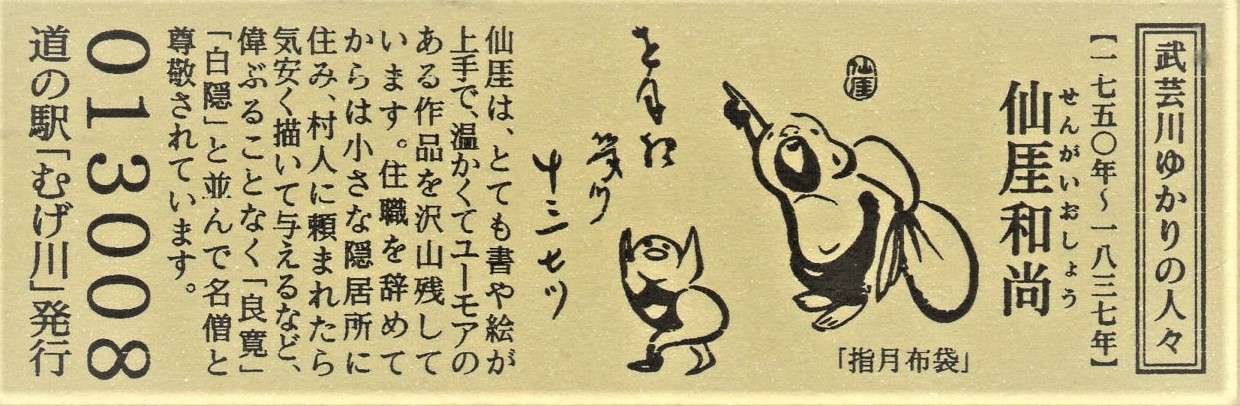 武芸川ゆかりの人々
【一七五〇年〜一八三七年】
せんがいおしょう
仙厓和尚
仙厓
「指月布袋」
を月様
幾ツ
十三七ツ
仙厓は、とても書や絵が
上手で、温かくてユーモアの
ある作品を沢山残して
います。住職を辞めて
からは小さな隠居所に
住み、村人に頼まれたら
気安く描いて与えるなど、
偉ぶることなく「良寛」
「白隠」と並んで名僧と
尊敬されています。
013008
道の駅「むげ川」発行